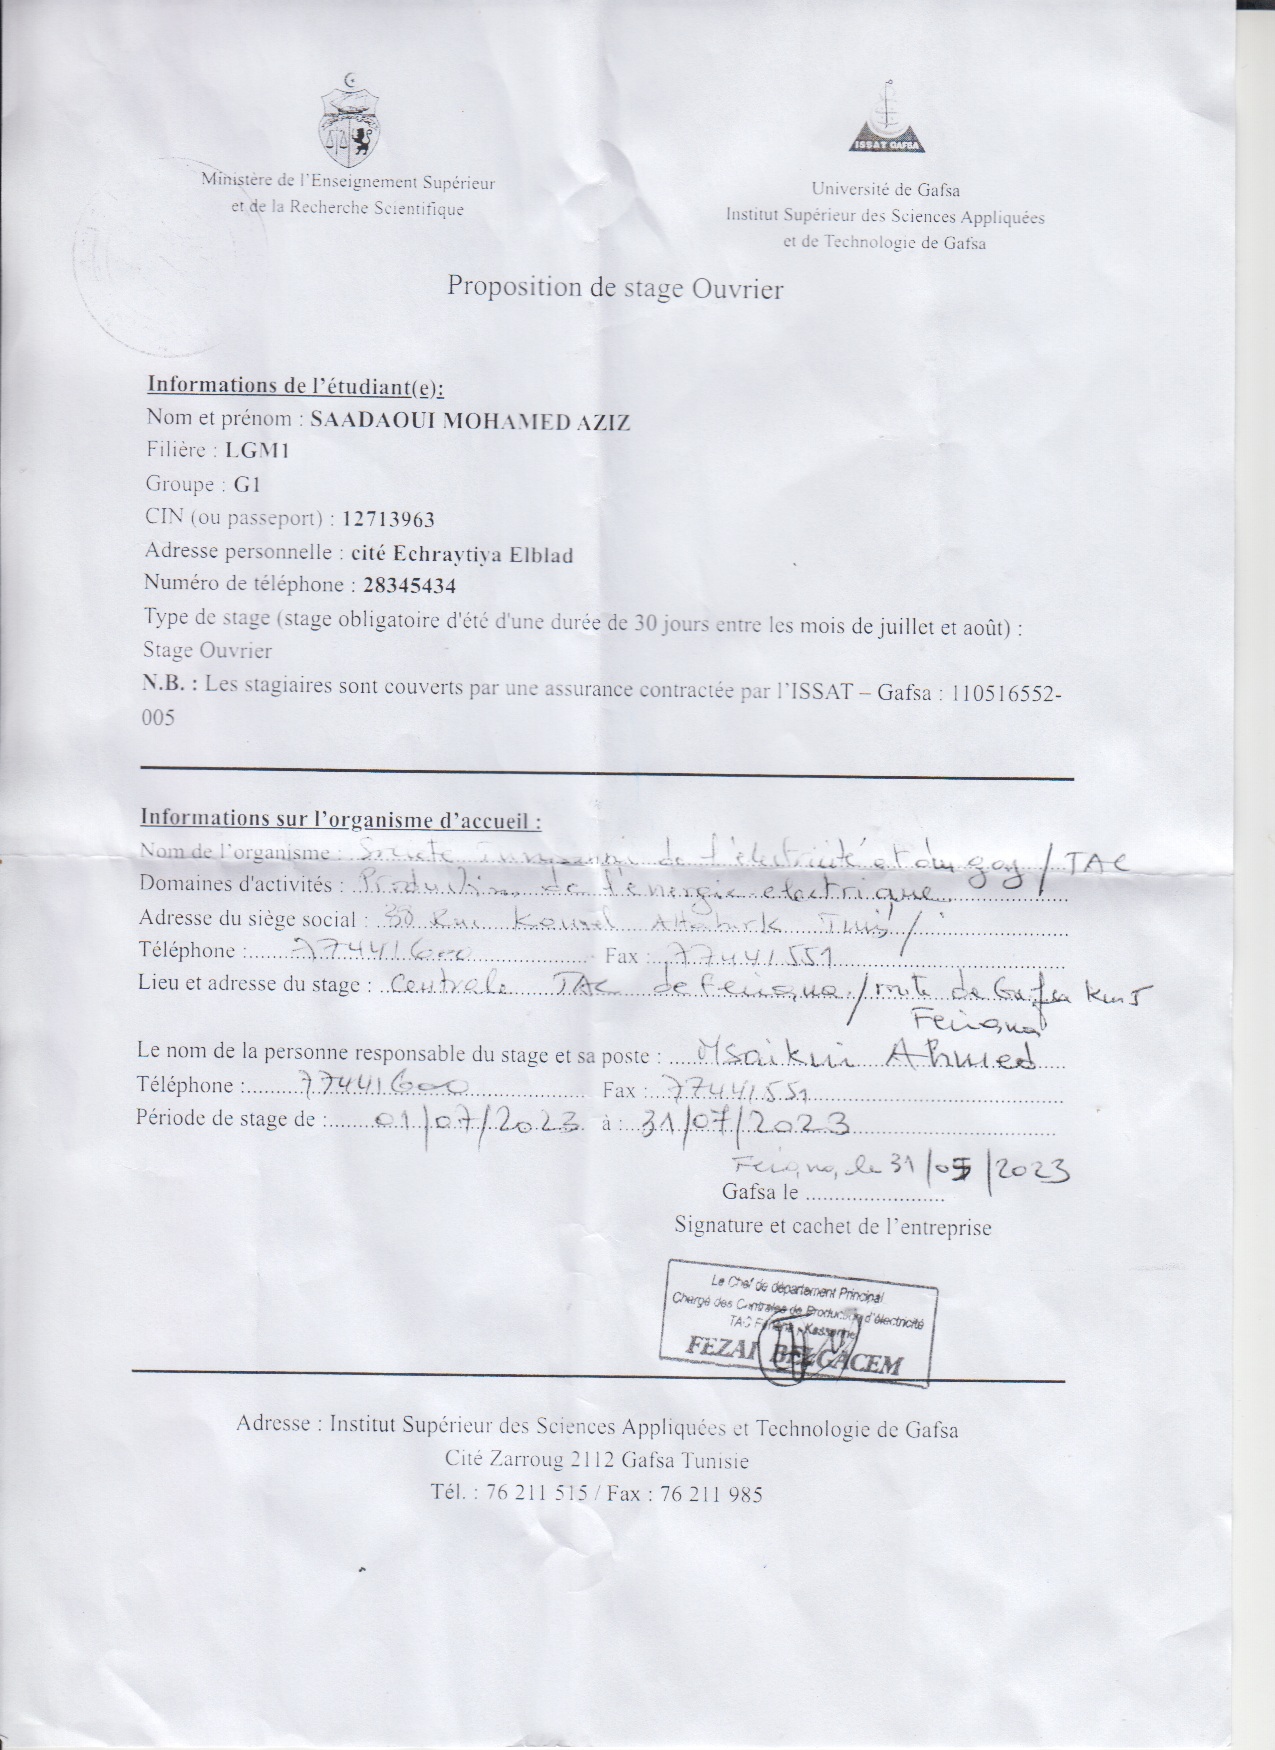 ISSAT GAFSA
Ministère de l'Enseignement Supérieur
et de la Recherche Scientifique
Université de Gafsa
Institut Supérieur des Sciences Appliquées
et de Technologie de Gafsa
Proposition de stage Ouvrier
Informations de l'étudiant(e):
Nom et prénom : SAADAOUI MOHAMED AZIZ
Filière : LGM1
Groupe : G1
CIN (ou passeport) : 12713963
Adresse personnelle : cité Echraytiya Elblad
Numéro de téléphone : 28345434
Type de stage (stage obligatoire d'été d'une durée de 30 jours entre les mois de juillet et août) :
Stage Ouvrier
N.B. : Les stagiaires sont couverts par une assurance contractée par l'ISSAT – Gafsa : 110516552-
005
Informations sur l'organisme d'accueil :
Nom de l'organisme : Societe de l'électricité et du gaz / TAC
Domaines d'activités : Production de l'énergie electrique
Adresse du siège social : 38 Rue Kamel Attaturk Tunis
Téléphone : 77441600 Fax : 77441551
Lieu et adresse du stage : Centrale TAC de Feriana / route de Gafsa km 5
Feriana
Le nom de la personne responsable du stage et sa poste : Ahmed
Téléphone : 77441600 Fax : 77441551
Période de stage de : 01/07/2023 à : 31/07/2023
Feriana, le 31/05/2023
Gafsa le ........................
Signature et cachet de l'entreprise
Le Chef de département Principal
Chargé des Centrales de Production d'électricité
TAC Feriana - Kasserine
FEZAI BELGACEM
Adresse : Institut Supérieur des Sciences Appliquées et Technologie de Gafsa
Cité Zarroug 2112 Gafsa Tunisie
Tél. : 76 211 515 / Fax : 76 211 985